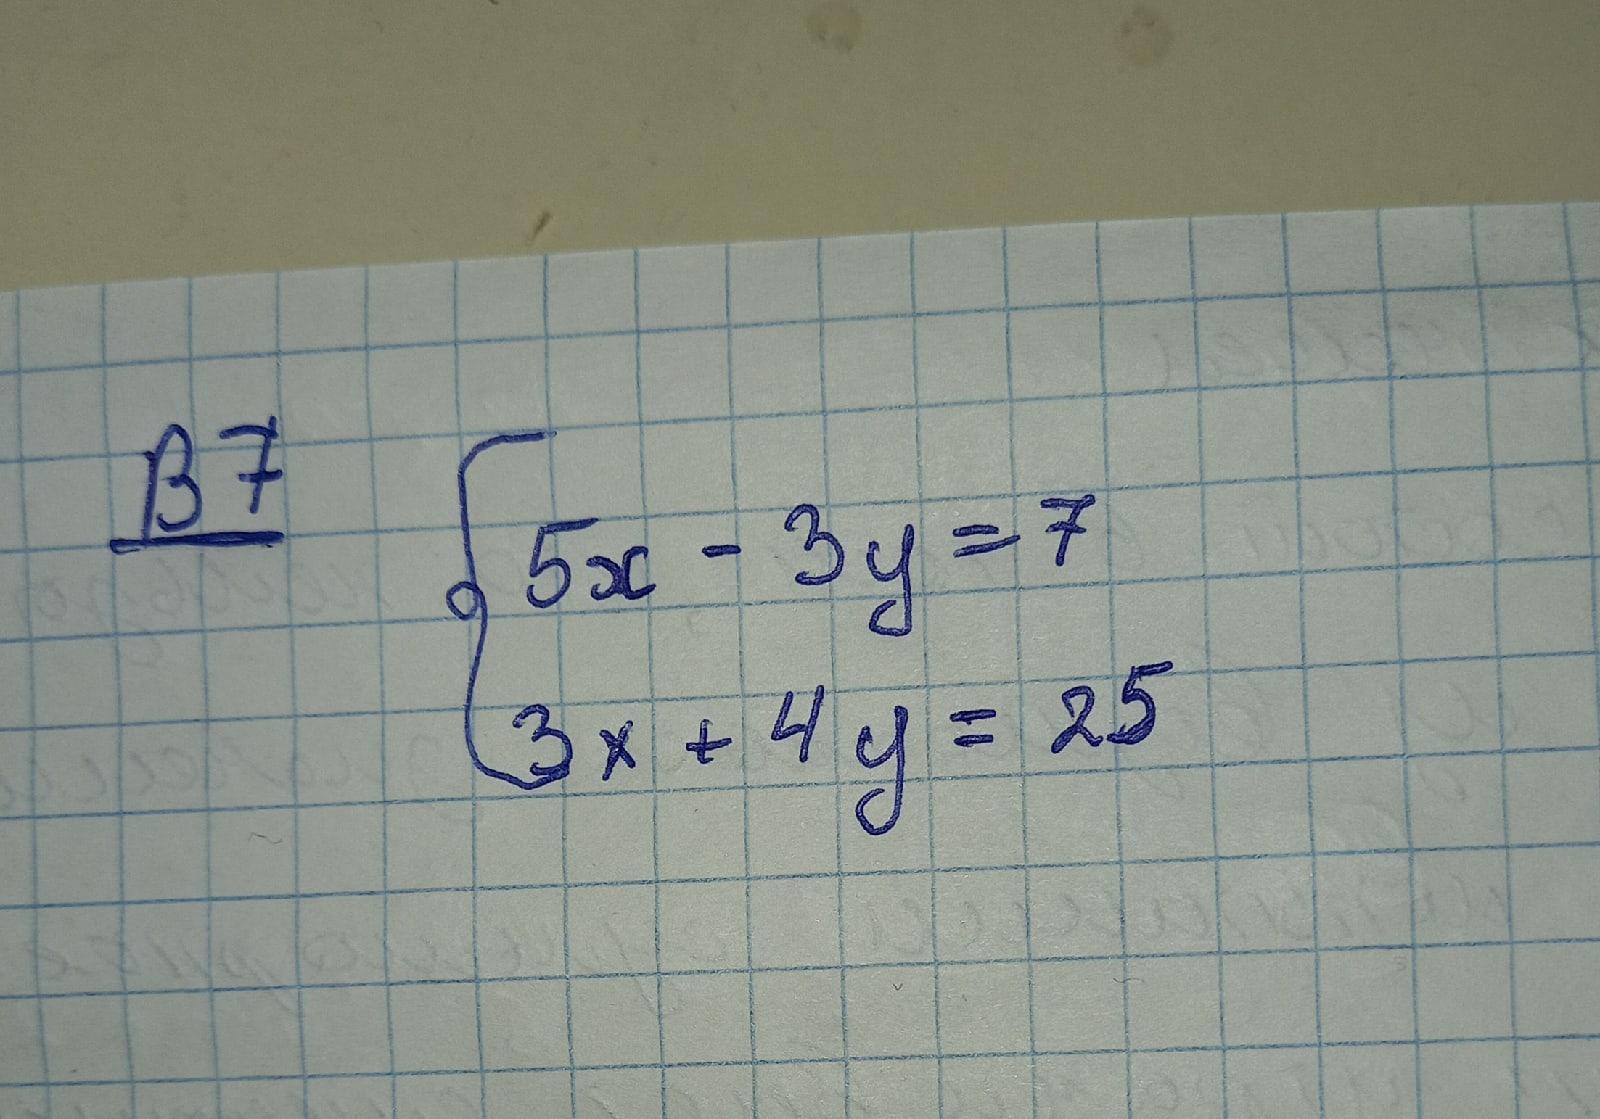 B7
5x - 3y = 7
3x + 4y = 25